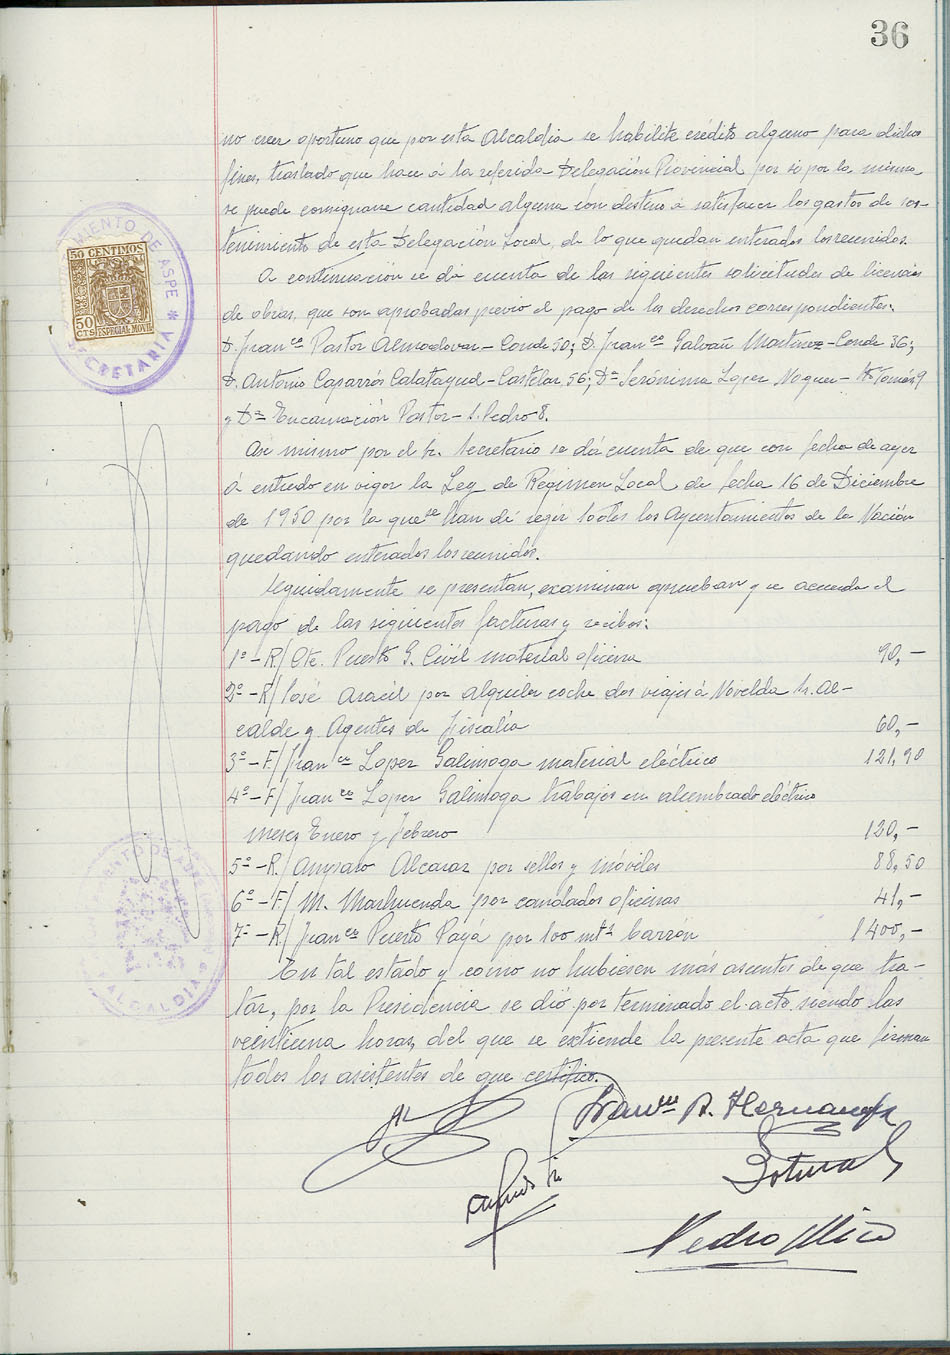 36
no creer oportuno que por esta Alcaldía se habilite crédito alguno para dichos
fines, traslado que hace á la referida Delegación Provincial por si por la misma
se puede consignarse cantidad alguna con destino á satisfacer los gastos de sos-
tenimiento de esta Delegación Local, de lo que quedan enterados los reunidos.
A continuación se dá cuenta de las siguientes solicitudes de licencias
de obras, que son aprobadas previo el pago de los derechos correspondientes.
D. Franco Pastor Almodovar - Conde 50; D. Franco Galvañ Martinez - Conde 36;
D. Antonio Caparrós Calatayud - Castelar, 56; Da Jerónima Lopez Noguer - Sto Tomás, 9
y Da Encarnación Pastor - S. Pedro 8.
Así mismo por el Sr. Secretario se dá cuenta de que con fecha de ayer
á entrado en vigor la Ley de Régimen Local de fecha 16 de Diciembre
de 1950 por la que se han de regir todos los Ayuntamientos de la Nación
quedando enterados los reunidos.
Seguidamente se presentan, examinan aprueban y se acuerda el
pago de las siguientes facturas y recibos:
1º - R/ Cte. Puesto G. Civil material oficina 90,-
2º - R/ José Aracil por alquiler coche dos viajes á Novelda Sr. Al-
calde y Agentes de Fiscalía 60,-
3º - F/ Franco Lopez Galinsoga material eléctrico 121,90
4º - F/ Franco Lopez Galinsoga trabajos en alumbrado eléctrico
meses Enero y Febrero 120,-
5º - R/ Amparo Alcaraz por sellos y móviles 88,50
6º - F/ M. Mashuenda por candados oficinas 41,-
7º - R/ Franco Puerto Payá por 100 mts carrón 1400,-
En tal estado y como no hubiesen más asuntos de que tra-
tar, por la Presidencia se dió por terminado el acto siendo las
veintiuna horas, del que se extiende la presente acta que firman
todos los asistentes de que certifico.
Franco A. Hernandez
Pedro Mico
AYUNTAMIENTO DE ASPE * SECRETARIA *
50 CENTIMOS
50 CTS ESPECIAL MOVIL
AYUNTAMIENTO DE ASPE
ALCALDIA